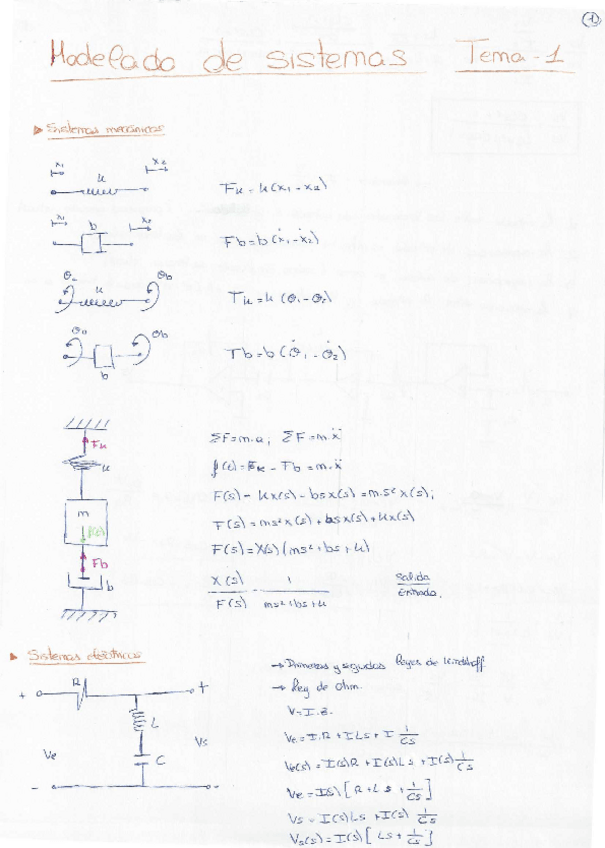 ①
Modelado de sistemas Tema-1
Sistemas mecánicos
x₁ k x₂
Fk = k(x₁ - x₂)
x₁ b x₂
Fb = b(ẋ₁ - ẋ₂)
k θb
Tk = k(θ₁ - θ₂)
θb
b
Tb = b(θ̇₁ - θ̇₂)
Fk
k
m
f(t)
Fb
b
ΣF = m.a; ΣF = m.ẍ
f(t) = Fk - Fb = m.ẍ
F(s) - kx(s) - bsx(s) = m.s² x(s);
F(s) = ms²x(s) + bsx(s) + kx(s)
F(s) = X(s)(ms² + bs + k)
X(s) / F(s) - 1 / ms² + bs + k
Salida / Entrada.
Sistemas eléctricos
→ Primeras y segundas leyes de Kirchhoff
→ Ley de Ohm.
V = I.Z.
Ve = I.R + ILs + I 1/Cs
Ve(s) = I(s)R + I(s)Ls + I(s) 1/Cs
Ve = I(s) [R + Ls + 1/Cs]
Vs = I(s)Ls + I(s) 1/Cs
Vs(s) = I(s) [Ls + 1/Cs]
+ R +
L
Ve Vs
C
- -